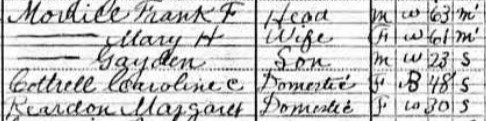 Morrice Frank F Head M W 63 M
—— Mary H Wife F W 61 M
—— Gayden Son M W 23 S
Cottrell Caroline C Domestic F B 48 S
Reardon Margaret Domestic F W 30 S